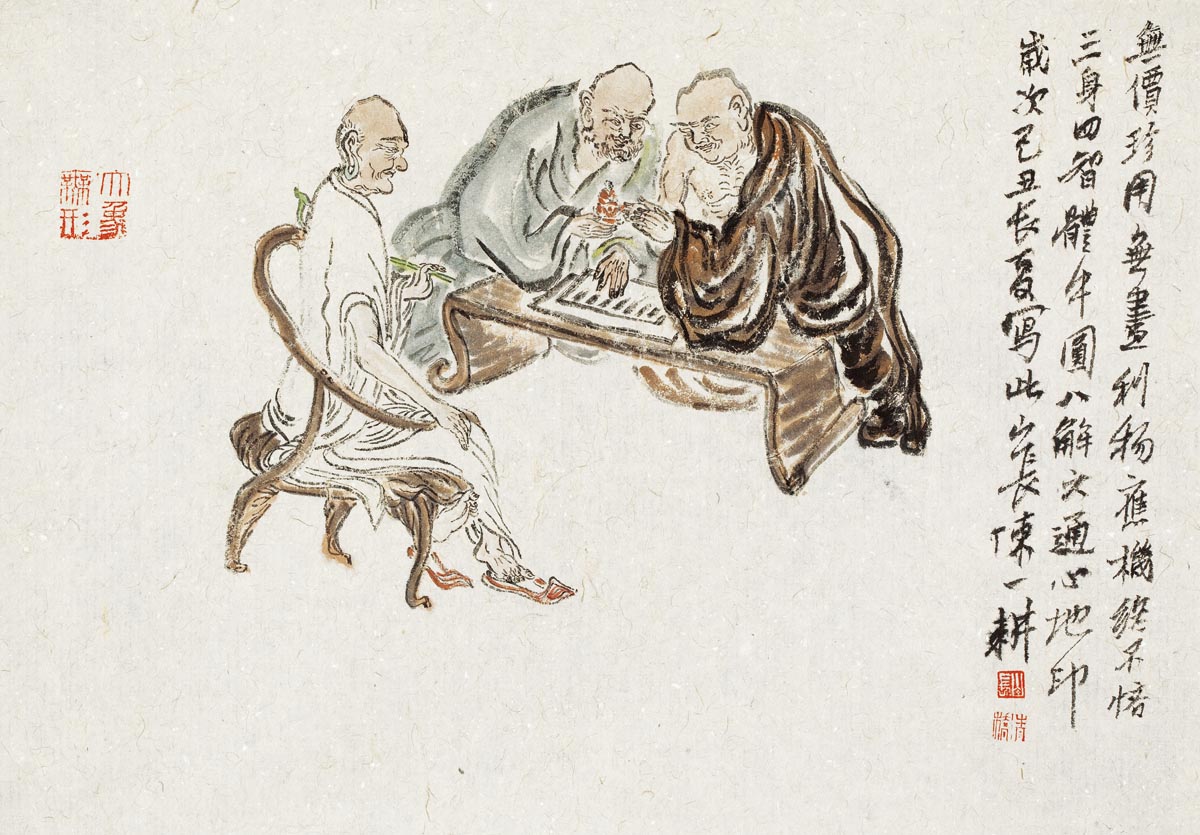 無價珍用無盡利物應機終不悋
三身四智體中圓八解六通心地印
歲次己丑長夏寫此岞長陳一耕
大象
無形